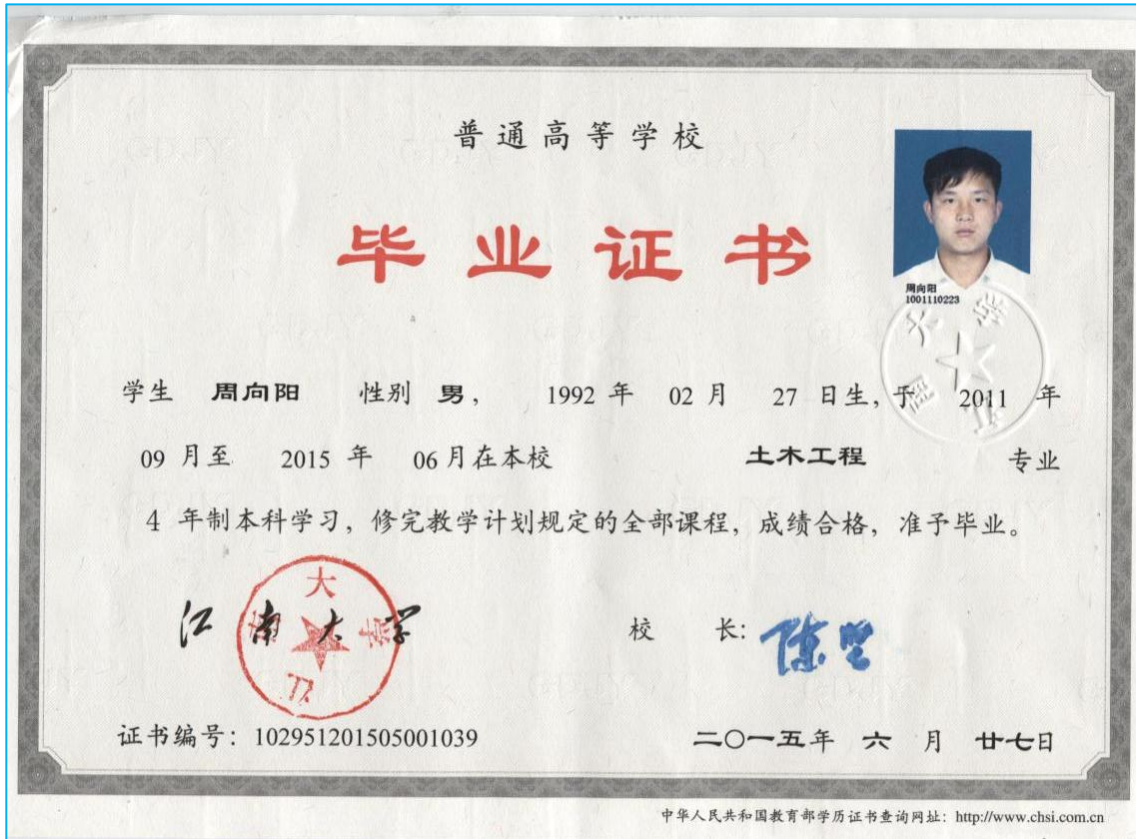 普通高等学校
毕业证书
周向阳
1001110223
学生 周向阳 性别 男, 1992 年 02 月 27 日生, 于 2011 年
09 月至 2015 年 06 月在本校 土木工程 专业
4 年制本科学习, 修完教学计划规定的全部课程, 成绩合格, 准予毕业。
江南大学
江南大学
校 长: 陈坚
证书编号: 102951201505001039
二〇一五年 六 月 廿七日
中华人民共和国教育部学历证书查询网址: http://www.chsi.com.cn